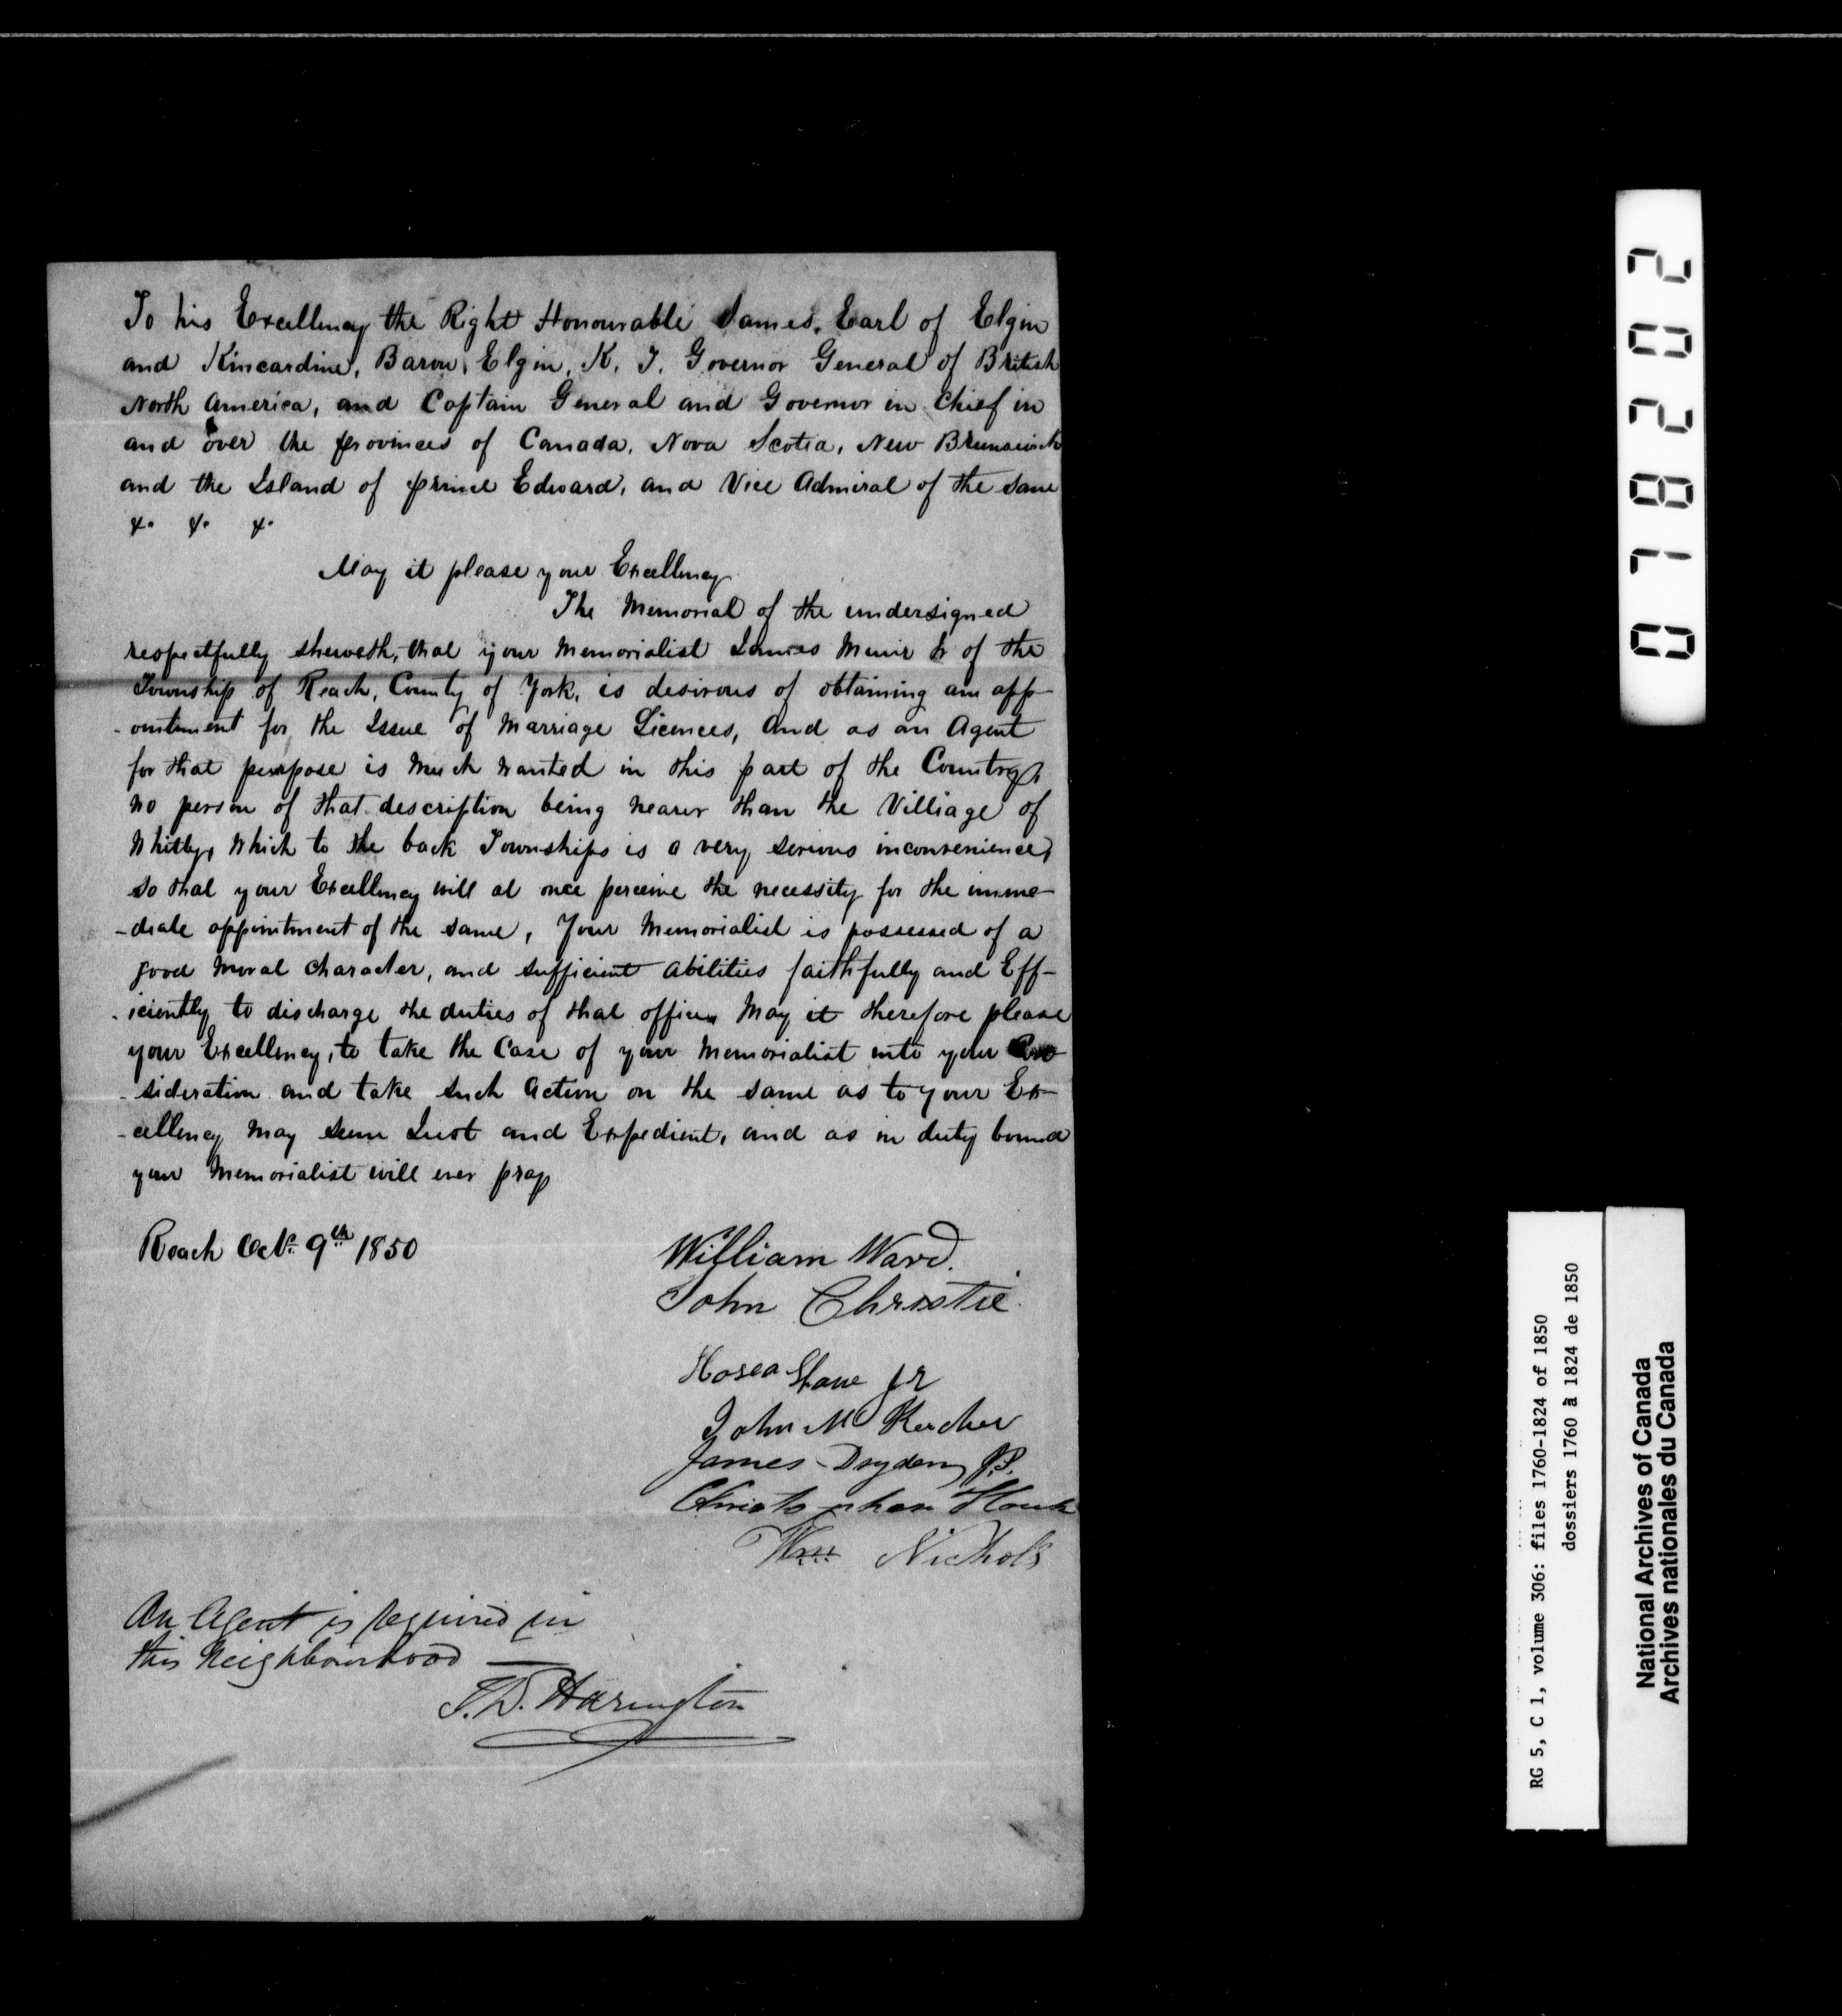 To his Excellency the Right Honourable James, Earl of Elgin
and Kincardine, Baron, Elgin, K. T. Governor General of British
North America, and Captain General and Governor in Chief in
and over the provinces of Canada, Nova Scotia, New Brunswick
and the Island of prince Edward, and Vice Admiral of the Same
&. &. &.
May it please your Excellency
The Memorial of the undersigned
respectfully sheweth, that your Memorialist James Muir Jr of the
Township of Reach, County of York, is desirous of obtaining an app-
-ointment for the Issue of Marriage Licences, and as an Agent
for that purpose is much wanted in this part of the Country,
no person of that description being nearer than the Villiage of
Whitby, which to the back Townships is a very serious inconvenience,
so that your Excellency will at once perceive the necessity for the imme-
-diate appointment of the same, Your Memorialist is possessed of a
good moral character, and sufficient abilities faithfully and Eff-
-iciently to discharge the duties of that office, May it therefore please
your Excellency, to take the Case of your Memorialist into your Con
-sideration and take such action on the same as to your Ex-
-cellency may seem Just and Expedient, and as in duty bound
your Memorialist will ever pray
Reach Oct. 9th 1850
William Ward.
John Christie.
Hosea Jr
John Mc Kercher
James Dryden J.P.
Christopher
Wm Nichols
An Agent is required in
this Neighbourhood —
T.D. Harington
2 0 2 8 1 0
RG 5, C 1, volume 306: files 1760-1824 of 1850
dossiers 1760 à 1824 de 1850
National Archives of Canada
Archives nationales du Canada